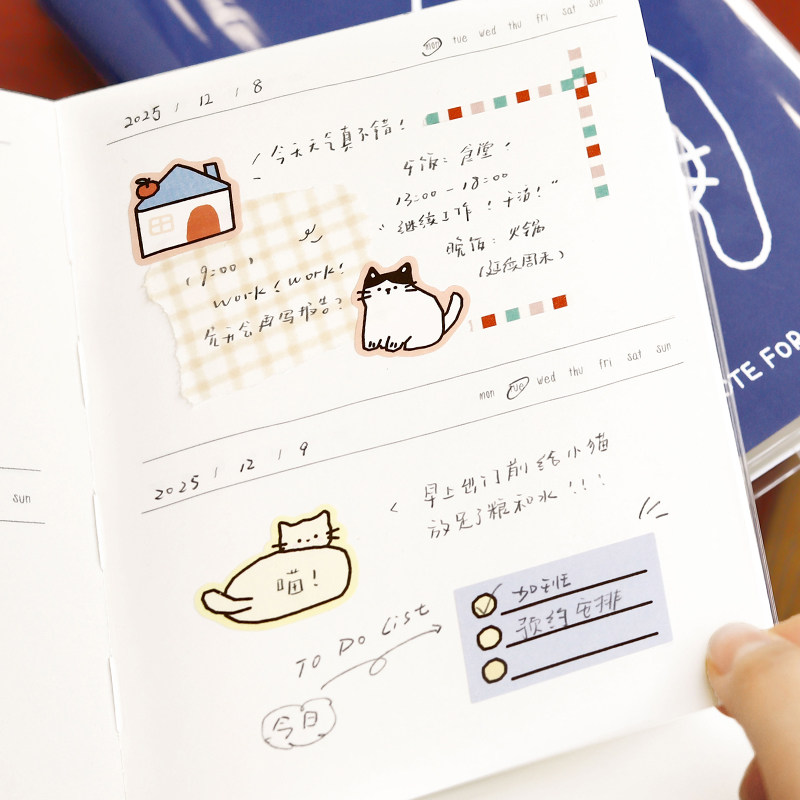 mon tue wed thu fri sat sun
2025 / 12 / 8
今天天气真不错!
午饭:食堂,
13:00-18:00
"继续工作!干活!"
晚饭:火锅
(延续周末)
(9:00)
work! work!
今天会再写报告?
mon tue wed thu fri sat sun
2025 / 12 / 9
早上出门前给小猫
放足了粮和水!!!
喵!
加班
预约安排
TO DO List
今日
sun
TE FOR